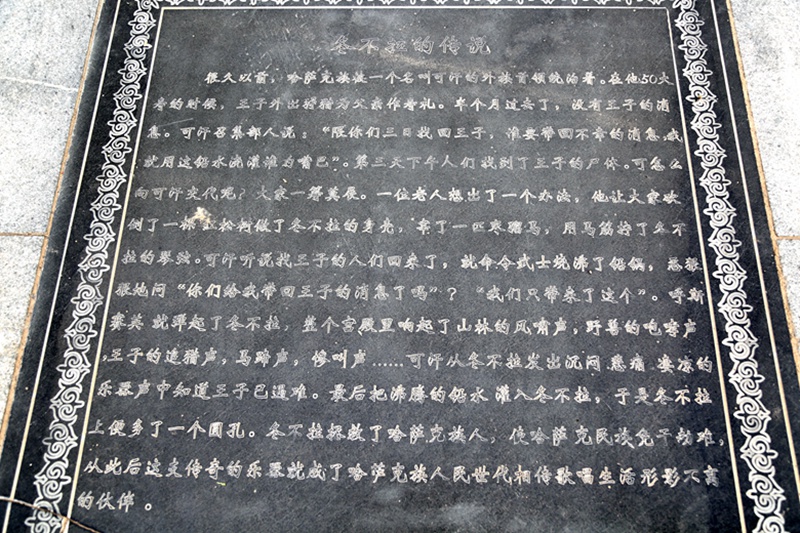 冬不拉的传说
很久以前，哈萨克族被一个名叫可汗的外族首领统治着。在他50大
寿的时候，王子外出狩猎为父亲作寿礼。半个月过去了，没有王子的消
息。可汗召集部人说：“限你们三日找回王子，谁要带回不幸的消息，我
就用这铅水浇灌谁为嘴巴”。第三天下午人们找到了王子的尸体。可怎么
向可汗交代呢？大家一筹莫展。一位老人想出了一个办法，他让大家砍
倒了一棵 松树做了冬不拉的身壳，宰了一匹枣骝马，用马筋拧了冬不
拉的琴弦。可汗听说找王子的人们回来了，就命令武士烧沸了铅锅，恶狠
狠地问“你们给我带回王子的消息了吗”？“我们只带来了这个”。呼斯
赛英 就弹起了冬不拉，整个宫殿里响起了山林的风啸声，野兽的咆哮声
，王子的追猎声，马蹄声，惨叫声……可汗从冬不拉发出沉闷 悲痛 凄凉的
乐器声中知道王子已遇难。最后把沸腾的铅水 灌入冬不拉，于是冬不拉
上便多了一个圆孔。冬不拉拯救了哈萨克族人，使哈萨克民族免于劫难，
从此后这支传奇的乐器就成了哈萨克族人民世代相传歌唱生活形影不离
的伙伴。